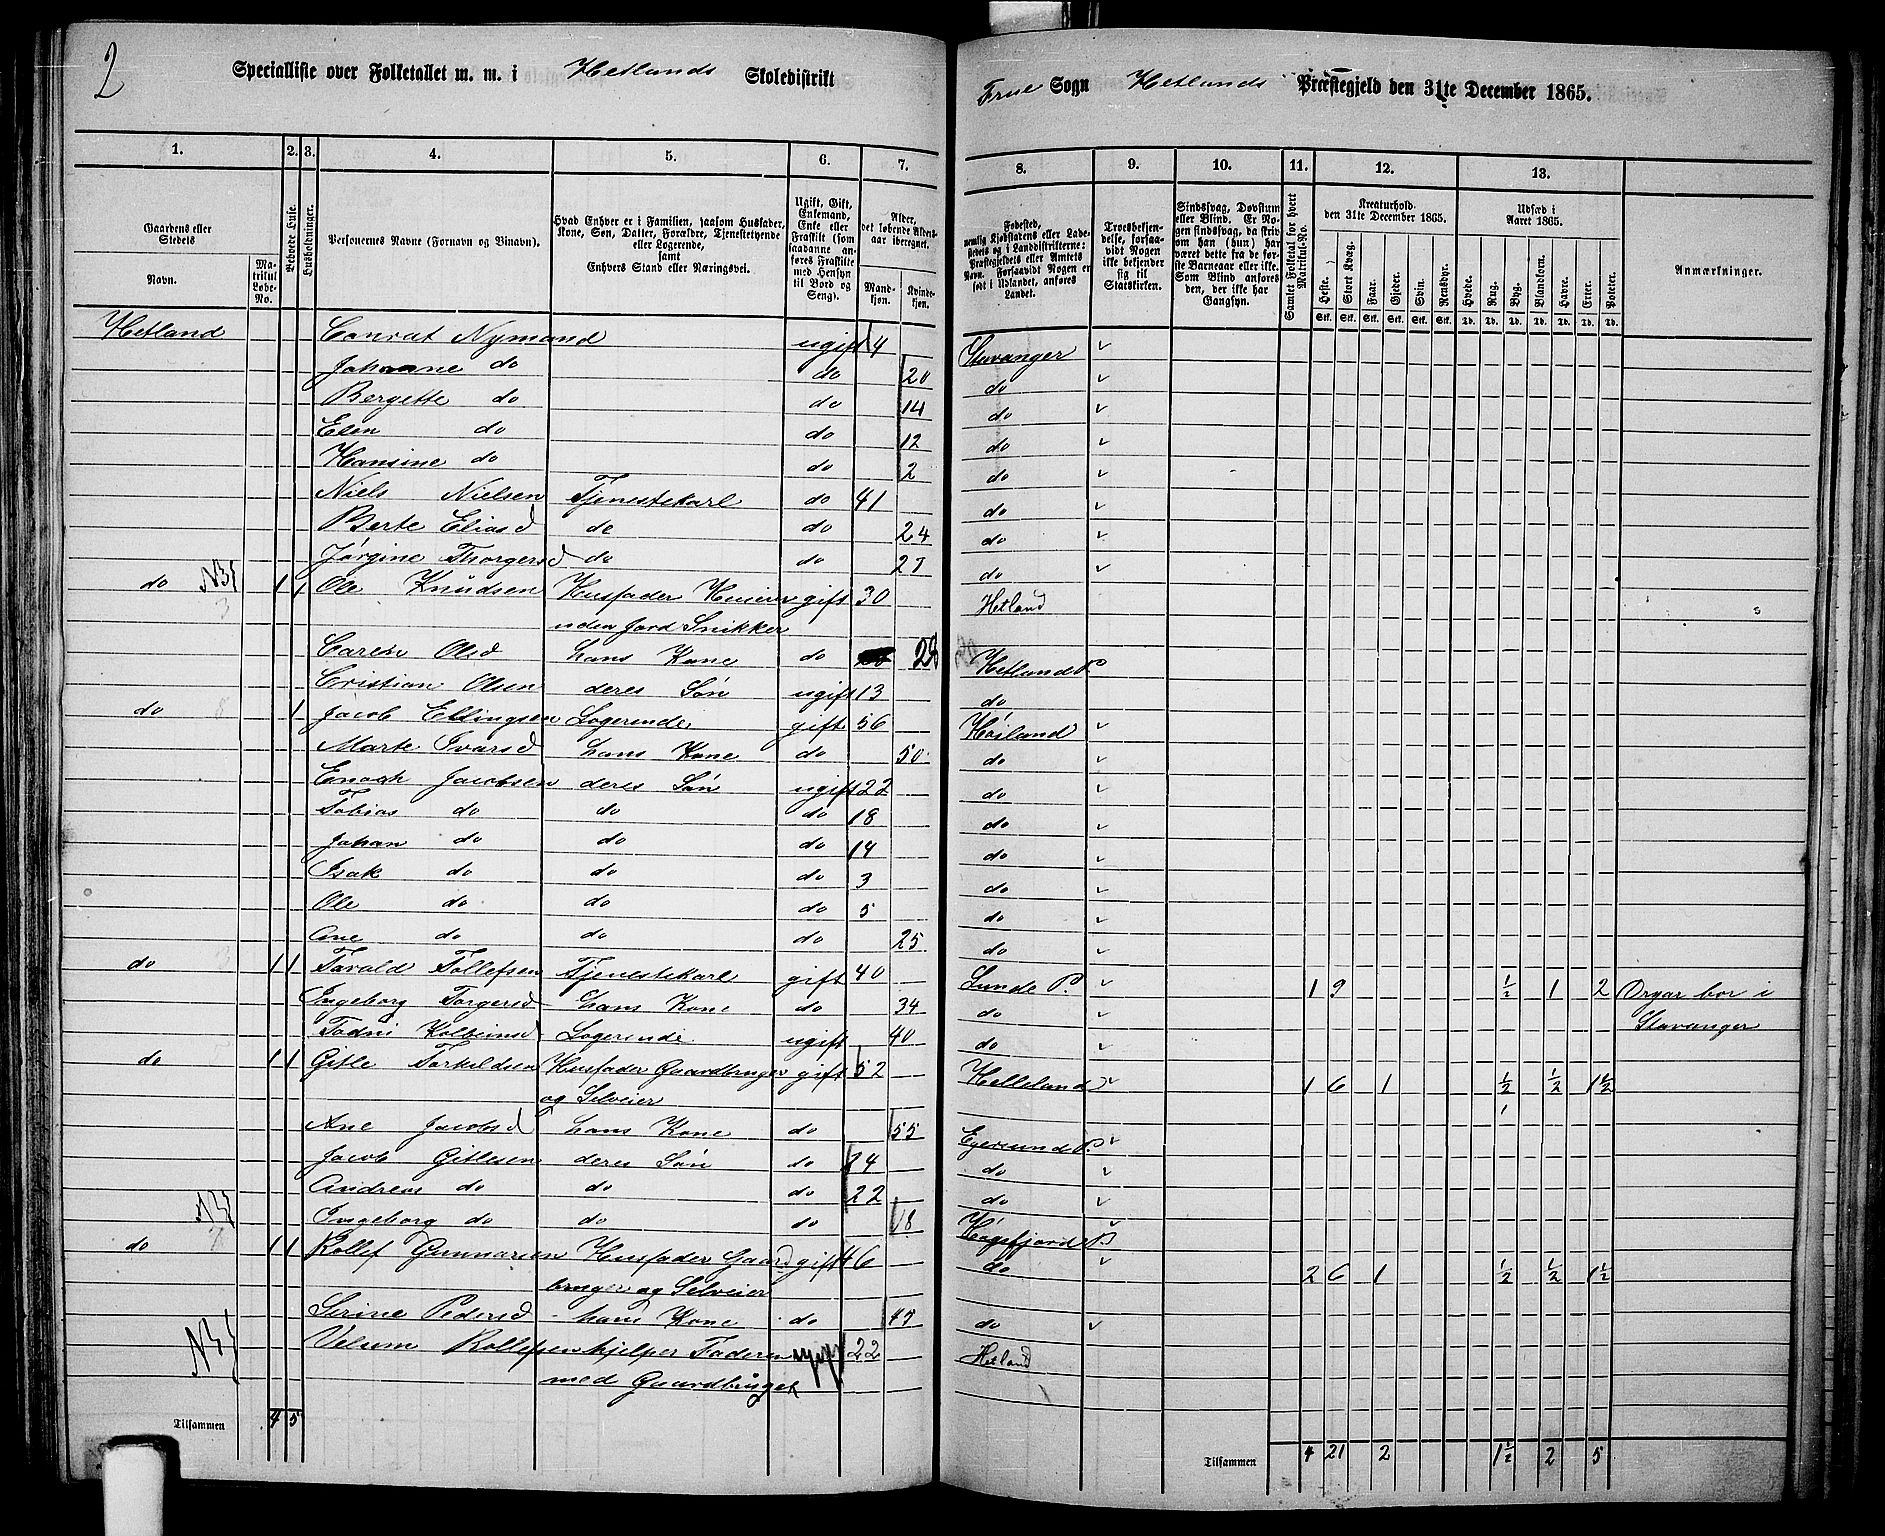 2
Specialliste over Folketallet m. m. i Hetlands Skoledistrikt
Frue Sogn Hetlands Præstegjeld den 31te December 1865.
1. 2. 3. 4. 5. 6. 7.
8. 9. 10. 11. 12. 13.
Gaardens eller Stedets
Navn.
Matrikul Løbe-No.
Beboede Huse.
Husholdninger.
Personernes Navne (Fornavn og Vinavn).
Hvad Enhver er i Familien, saasom Husfader, Kone, Søn, Datter, Forældre, Tjenestetyende eller Logerende, samt Enhvers Stand eller Næringsvei.
Ugift, Gift, Enkemand, Enke eller Fraskilt (som saadanne anføres Fraskilte med Hensyn til Bord og Seng).
Alder, det løbende Aldersaar iberegnet.
Mandkjøn. Kvindekjøn.
Fødested, nemlig Kjøbstadens eller Ladestedets og i Landdistrikterne: Præstegjeldets eller Amtets Navn. Forsaavidt Nogen er født i Udlandet, anføres Landet.
Troesbekjendelse, forsaavidt Nogen ikke bekjender sig til Statskirken.
Sindssvag, Døvstum eller Blind. Er Nogen sindssvag, da skrives om han (hun) har været dette fra de første Barneaar eller ikke. Som Blind anføres den, der ikke har Gangsyn.
Samlet Folketal for hvert Matrikul-No.
Kreaturhold den 31te December 1865.
Heste. Stort Kvæg. Faar. Gjeder. Svin. Rensdyr.
Udsæd i Aaret 1865.
Hvede. Rug. Byg. Blandkorn. Havre. Erter. Poteter.
Stk. Stk. Stk. Stk. Stk. Stk. Td. Td. Td. Td. Td. Td. Td.
Anmærkninger.
Hetland Conrat Nymand ugift 4 Stavanger
Johanne do do 20 do
Bergette do do 14 do
Elen do do 12 do
Hansine do do 2 do
Niels Nielsen Tjenestekarl do 41 do
Berte Eliasd do do 24 do
Jørgine Thorgersd do do 27 do
do 1 1 Ole Knudsen Husfader gift 30 Hetland
uden Jord Snikker
Caren Olsd hans Kone do 28 Hetland P.
Cristian Olsen deres Søn ugift 13 do
do 1 Jacob Ellingsen Logerende gift 56 Høiland
Marte Ivarsd hans Kone do 50 do
Enoch Jacobsen deres Søn ugift 22 do
Tobias do do do 18 do
Johan do do do 14 do
Isak do do do 3 do
Ole do do do 5 do
Ane do do do 25 do
do 1 1 Tarald Tollefsen Tjenestekarl gift 40 Lunde P. 1 9 ½ 1 2 bor i
Stavanger
Ingeborg Torgersd hans Kone do 34 do
Todni Kolbeinsd Logerende ugift 40 do
do 1 1 Gitle Torkildsen Husfader Gaardbruger gift 52 Helleland 1 6 1 ½ ½ 1½
og Selveier
Ane Jacobsd hans Kone do 55 Egersund P.
Jacob Gitlesen deres Søn do 24 do
Andreas do do do 22 do
Ingeborg do do do 18 Høgsfjord P
do 1 1 Rollef Gunnarsen Husfader Gaard gift 46 do 2 6 1 ½ ½ 1½
bruger og Selveier
Serine Pedersd hans Kone do 47 do
Rollefsen hjelper Faderen ugift 22 Hetland
med Gaardbruget
Tilsammen 4 5
Tilsammen 4 21 2 1½ 2 5